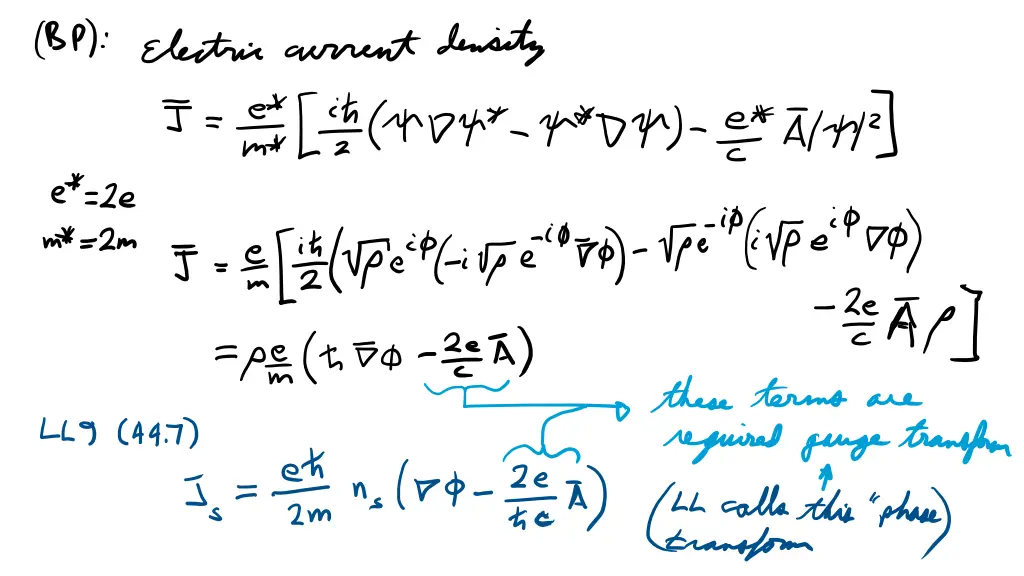 (BP): Electric current density
J̄ = e*/m* [ iħ/2 (ψ∇ψ* − ψ*∇ψ) − e*/c Ā|ψ|² ]
e* = 2e
m* = 2m
J̄ = e/m [ iħ/2 (√ρ e^{iφ} (−i √ρ e^{−iφ} ∇̄φ) − √ρ e^{−iφ} (i √ρ e^{iφ} ∇φ)
− 2e/c Ā ρ ]
= ρ e/m (ħ ∇̄φ − 2e/c Ā)
these terms are
required gauge transform
LL9 (44.7)
J̄_s = eħ/2m n_s (∇φ − 2e/ħc Ā)
(LL calls this "phase)
transform